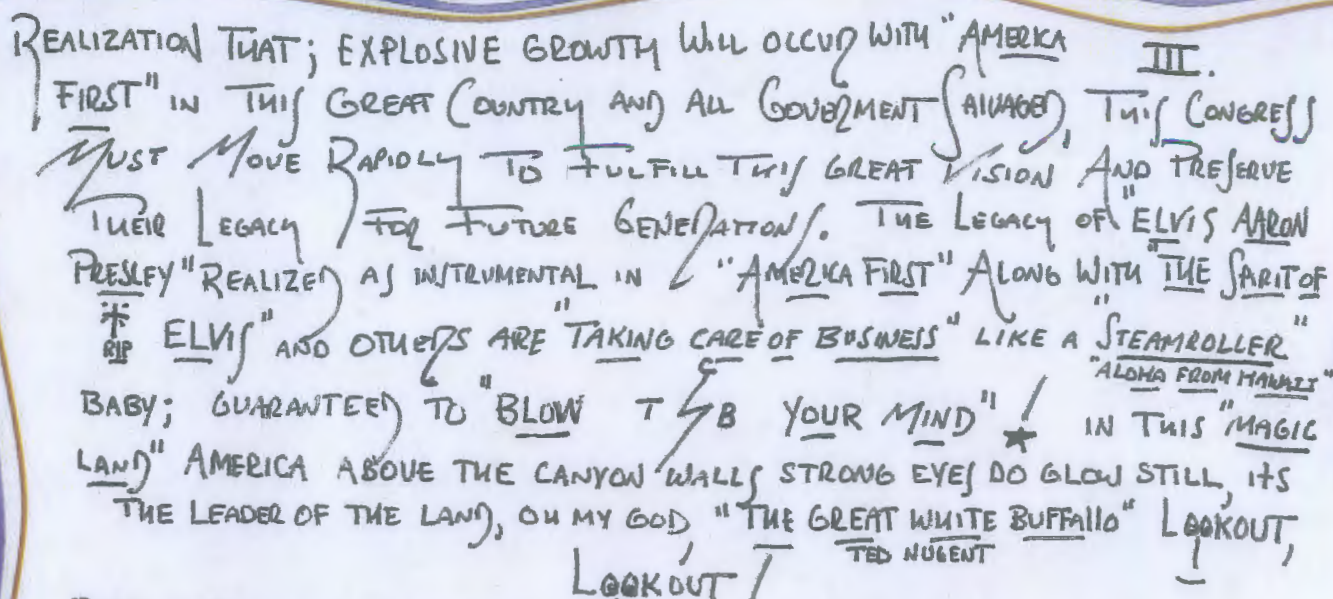 REALIZATION THAT; EXPLOSIVE GROWTH WILL OCCUR WITH "AMERICA III.
FIRST" IN THIS GREAT COUNTRY AND ALL GOVERMENT SALVAGED, THIS CONGRESS
MUST MOVE RAPIDLY TO FULFILL THIS GREAT VISION AND PRESERVE
THEIR LEGACY FOR FUTURE GENERATIONS. THE LEGACY OF "ELVIS AARON
PRESLEY" REALIZED AS INSTRUMENTAL IN "AMERICA FIRST" ALONG WITH "THE SPARIT OF
* RIP ELVIS" AND OTHERS ARE "TAKING CARE OF BUSINESS" LIKE A "STEAMROLLER"
"ALOHA FROM HAWAII"
BABY; GUARANTEED TO "BLOW T C B YOUR MIND"! ★ IN THIS "MAGIC
LAND" AMERICA ABOVE THE CANYON WALLS STRONG EYES DO GLOW STILL, ITS
THE LEADER OF THE LAND, OH MY GOD, "THE GREAT WHITE BUFFALLO" LOOKOUT,
TED NUGENT
LOOKOUT!